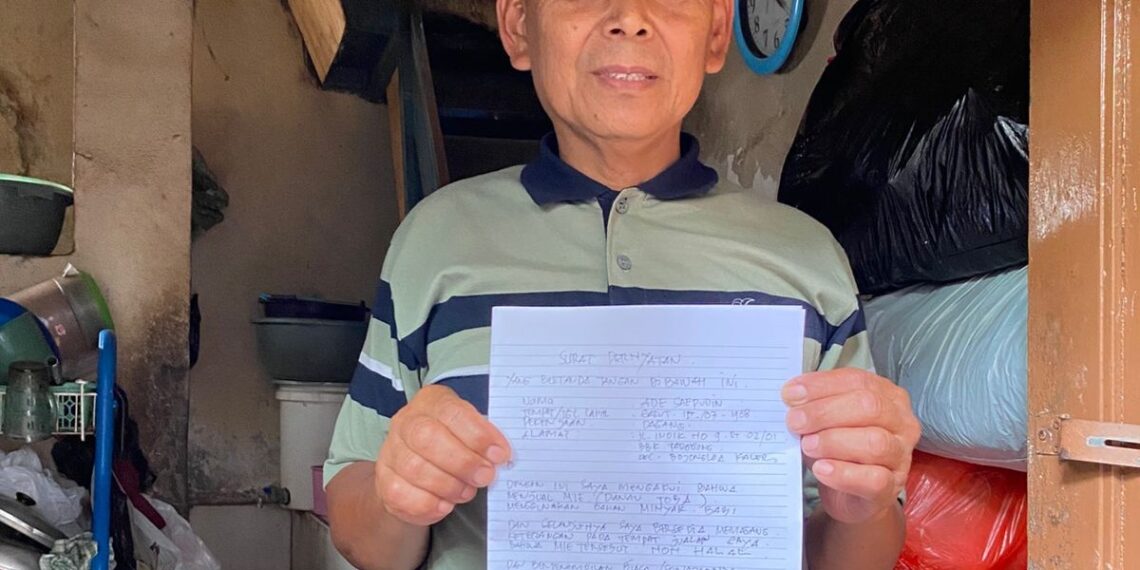 SURAT PERNYATAAN.
YANG BERTANDA TANGAN DI BAWAH INI.
NAMA : ADE SAEPUDIN
TEMPAT/TGL LAHIR : GARUT
PEKERJAAN : DAGANG
ALAMAT : NO 9 RT 02/01
BBK
KEC. BOJONGLOA KALER
DENGAN INI SAYA MENGAKUI BAHWA
MENJUAL MIE (DANAU TOBA)
MENGGUNAKAN BAHAN MINYAK BABI
DAN SELANJUTNYA SAYA BERSEDIA MEMASANG
KETERANGAN PADA TEMPAT JUALAN SAYA
BAHWA MIE TERSEBUT NON HALAL